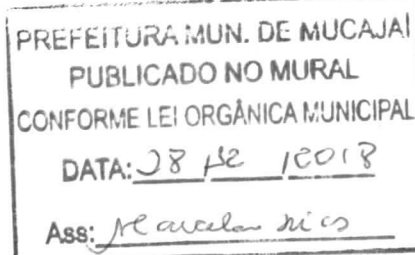 PREFEITURA MUN. DE MUCAJAI
PUBLICADO NO MURAL
CONFORME LEI ORGÂNICA MUNICIPAL
DATA: 28 /12 /2018
Ass: